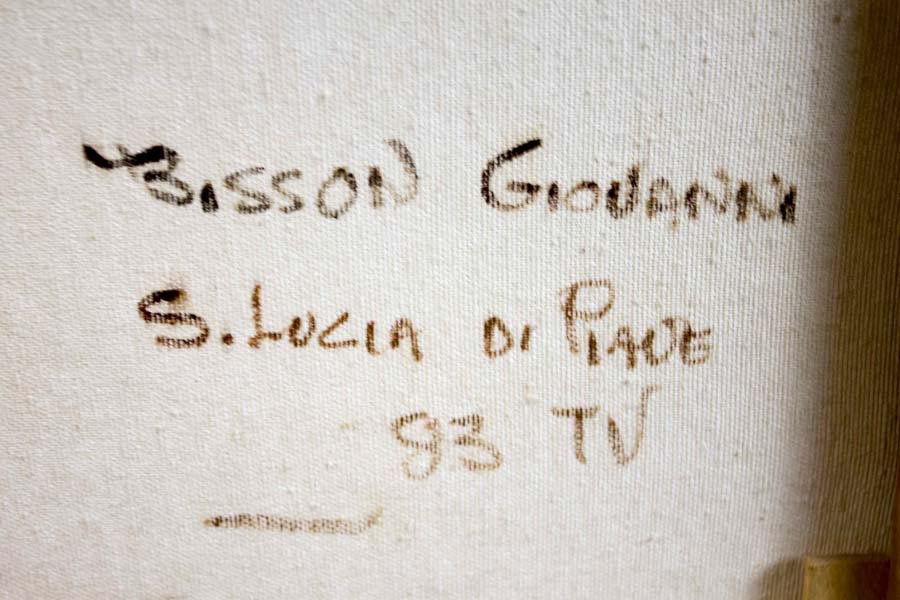 BISSON GIOVANNI
S. LUCIA DI PIAVE
93 TV